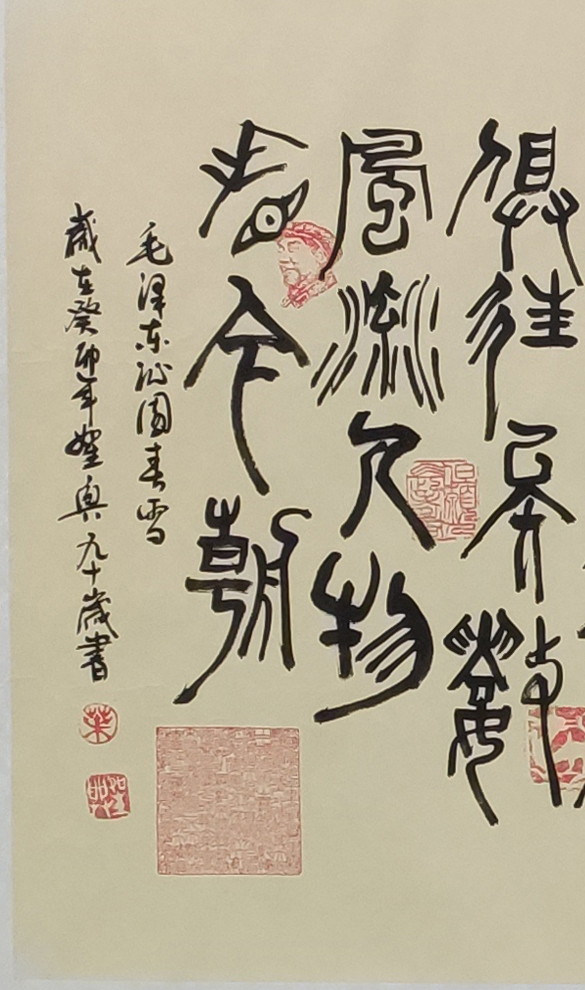 俱往矣數
風流人物
看今朝
毛澤東沁園春雪
歲在癸卯年 奧九十歲書